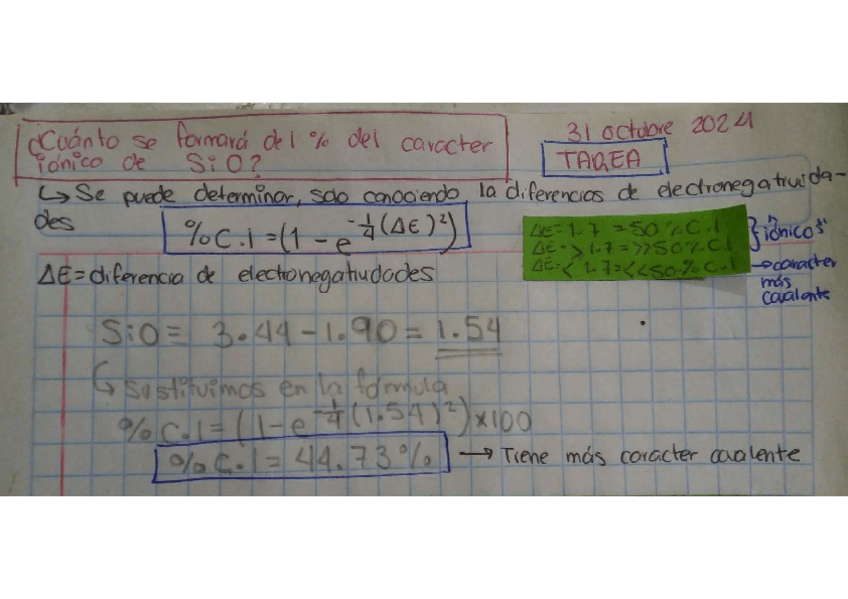 ¿Cuánto se formará del % del caracter
iónico de SiO?
31 octubre 2024
TAREA
↳ Se puede determinar, solo conociendo la diferencias de electronegatruida-
des
%C.I = (1 - e^-1/4(ΔE)²)
ΔE = 1.7 = 50% C.I
ΔE => 1.7 = >> 50% C.I
ΔE = < 1.7 = << 50% C.I
} iónicos"
→ caracter
más
covalente
ΔE = diferencia de electronegatiudades
SiO = 3.44 - 1.90 = 1.54
↳ Sustituimos en la fórmula
% C.I = (1 - e^-1/4(1.54)²) x100
% C.I = 44.73% → Tiene más caracter covalente